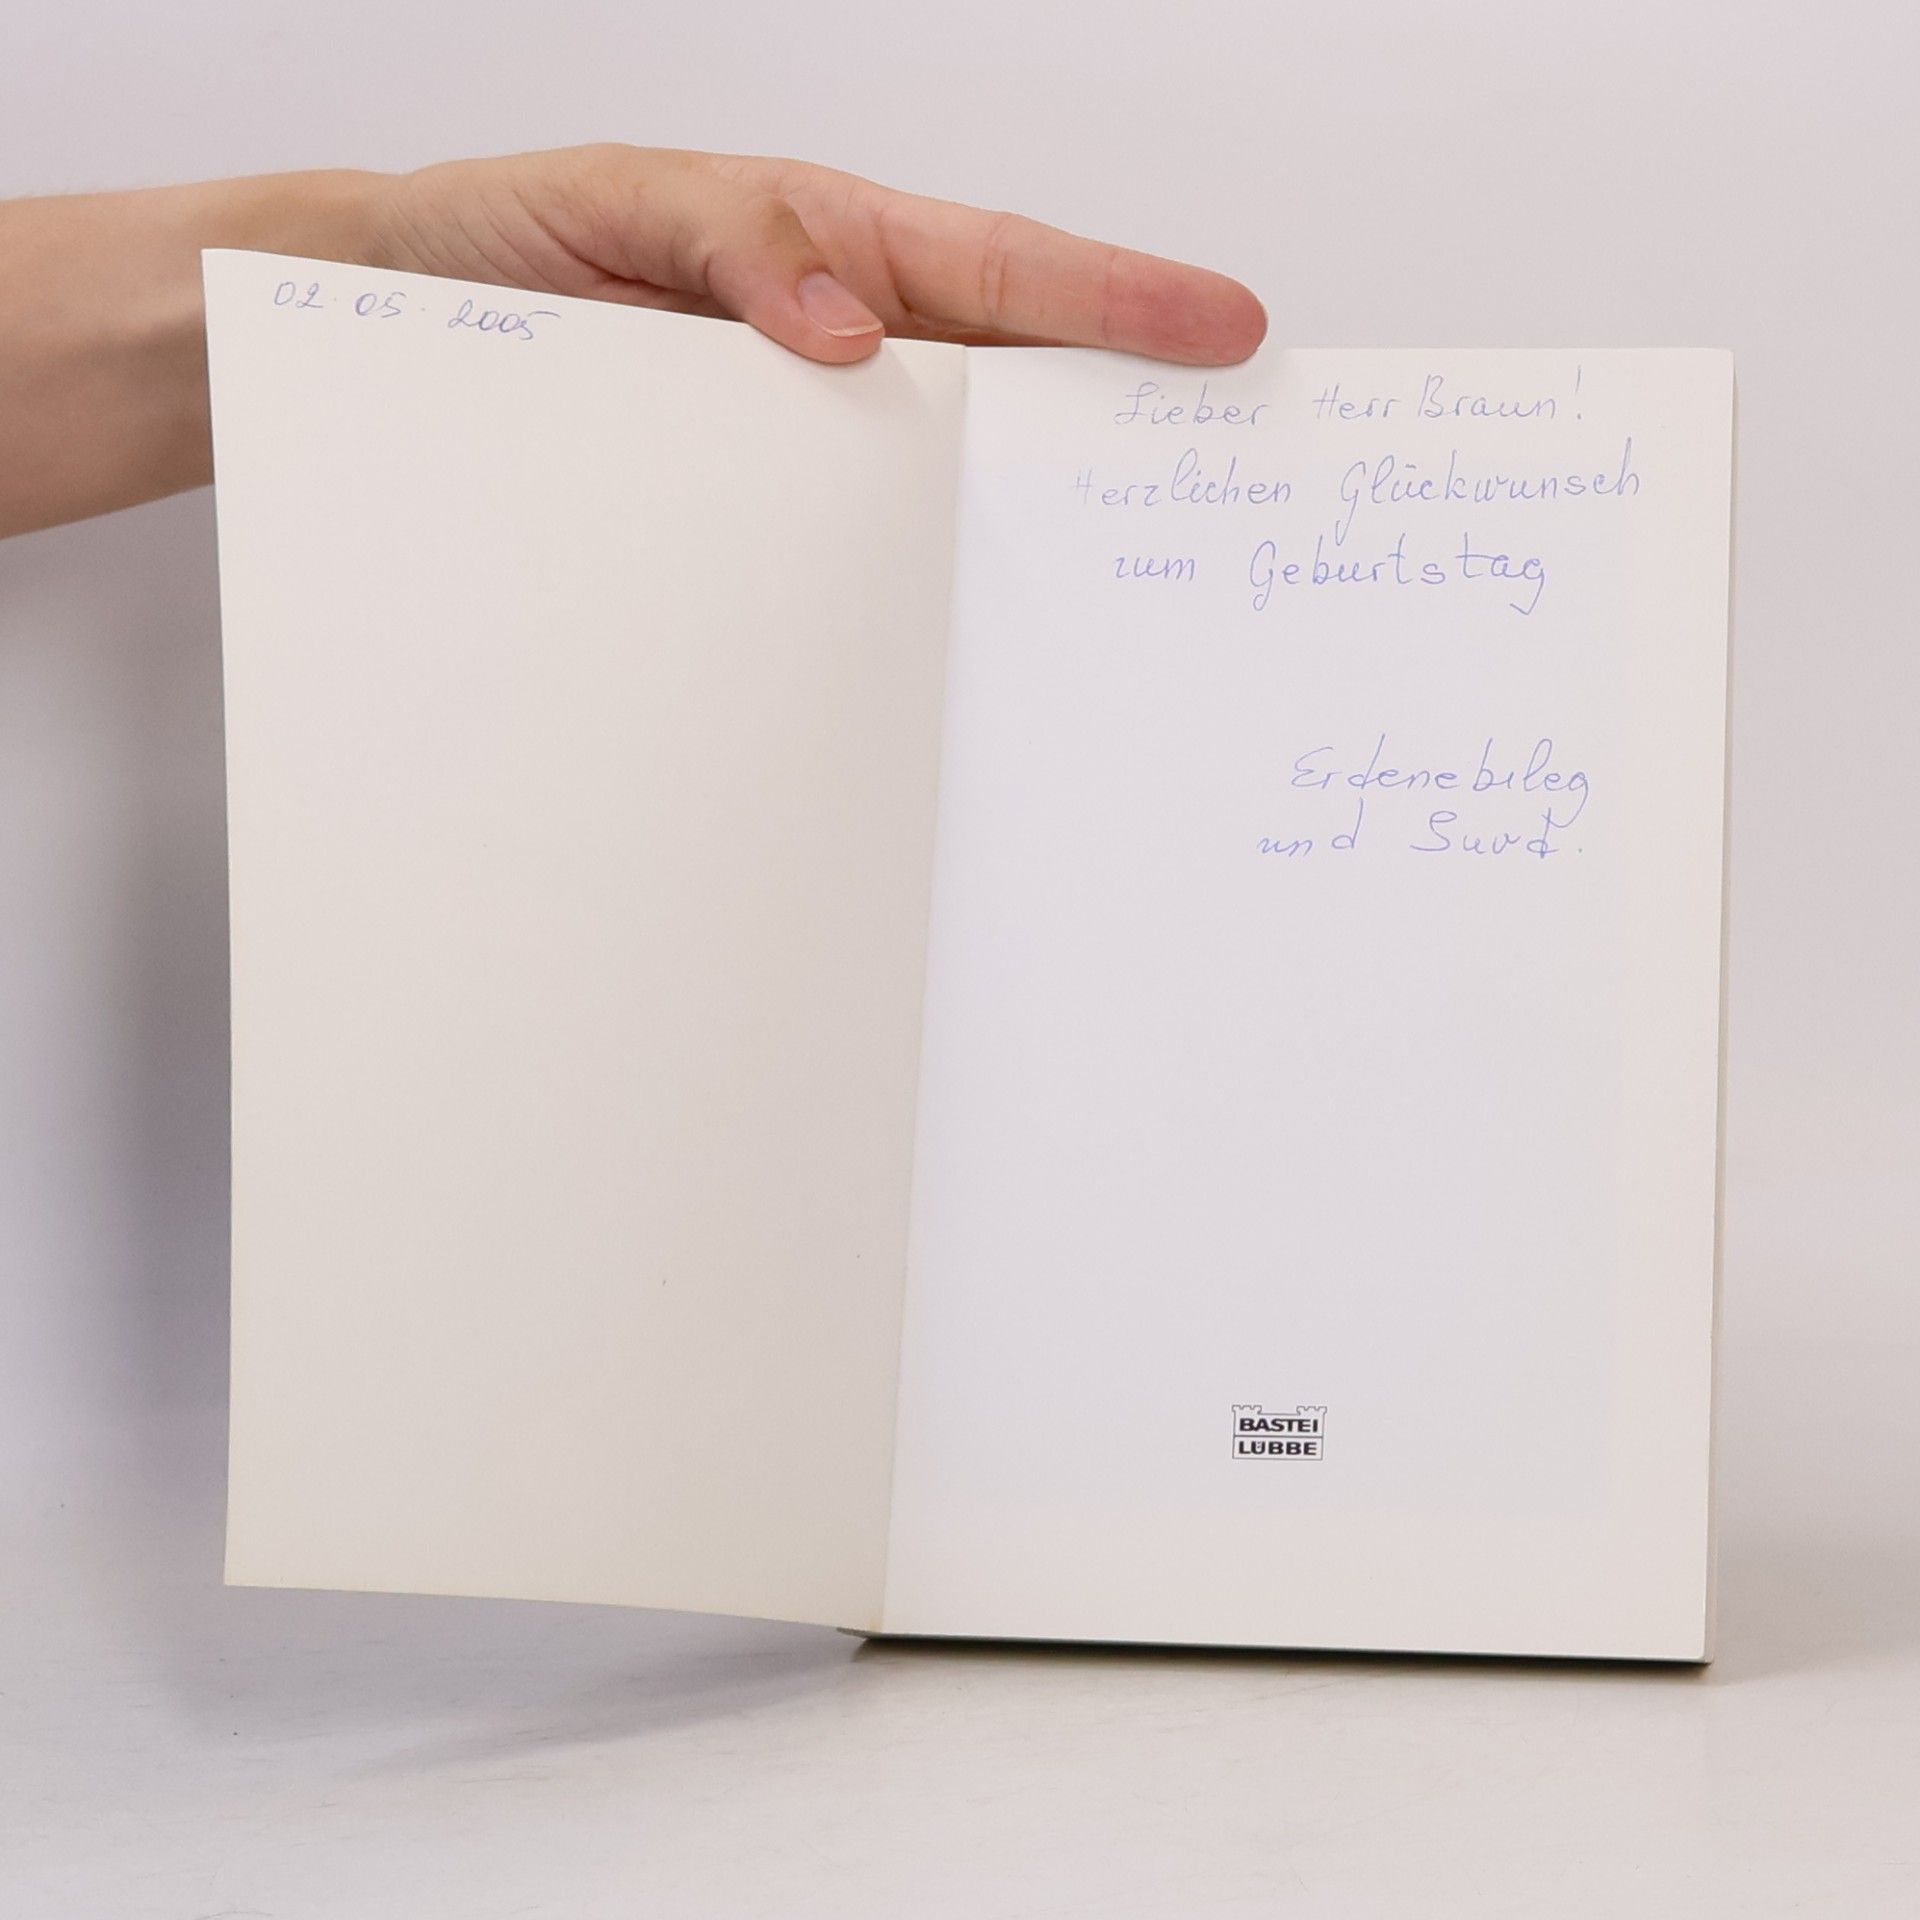 02.05.2005
Lieber Herr Braun!
Herzlichen Glückwunsch
zum Geburtstag
Erdenebileg
und Suvd.
BASTEI
LÜBBE